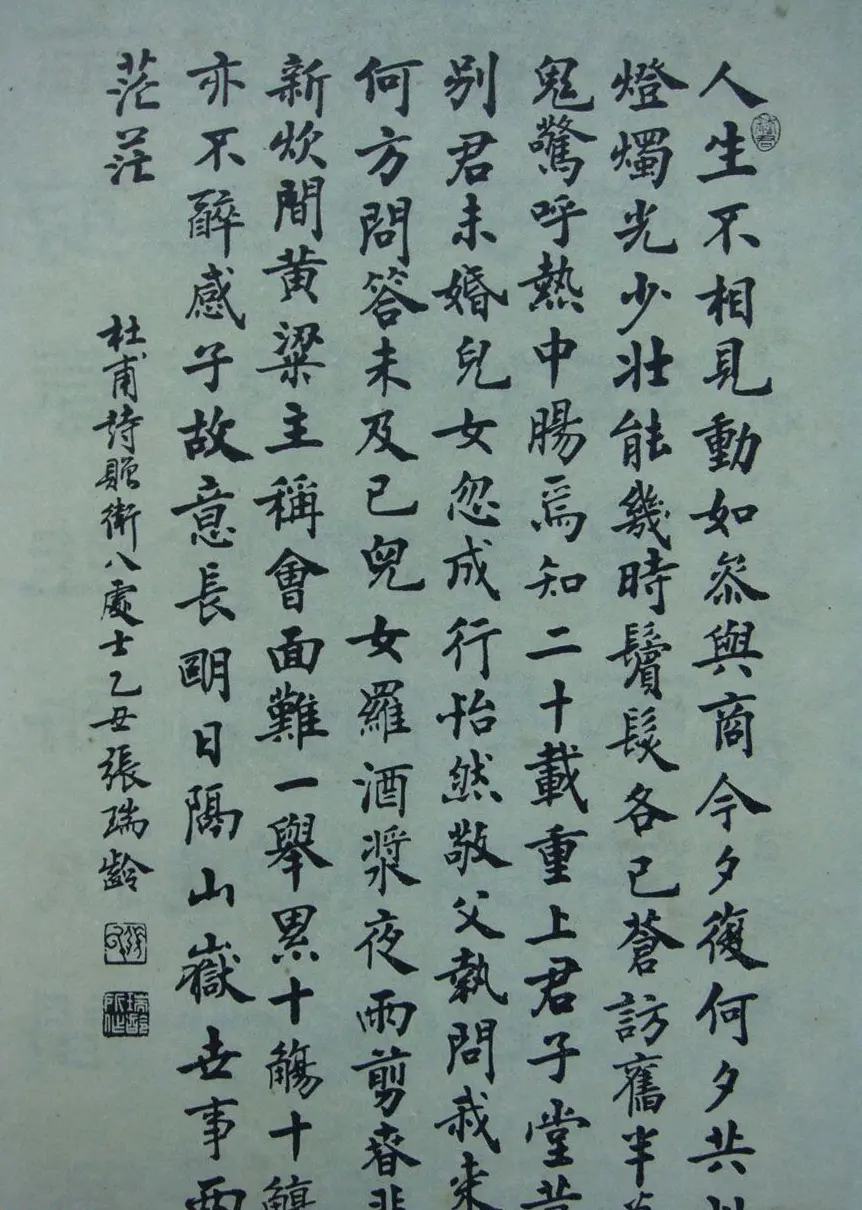 人生不相見動如參與商今夕復何夕共
燈燭光少壯能幾時鬢髮各已蒼訪舊半
鬼驚呼熱中腸焉知二十載重上君子堂昔
別君未婚兒女忽成行怡然敬父執問我來
何方問答未及已兒女羅酒漿夜雨剪春韭
新炊間黃粱主稱會面難一舉累十觴十觴
亦不醉感子故意長明日隔山嶽世事兩
茫茫
杜甫詩贈衛八處士乙丑張瑞齡